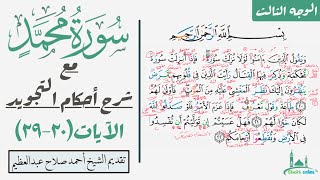 الوجه الثالث
سُورَةُ مُحَمَّدٍ
مع
شرح أحكام التجويد
الآيات (٢٠-٢٩)
تقديم الشيخ أحمد صلاح عبد العظيم
بِسْمِ اللَّهِ الرَّحْمَٰنِ الرَّحِيمِ
وَيَقُولُ الَّذِينَ آمَنُوا لَوْلَا نُزِّلَتْ سُورَةٌ فَإِذَا أُنزِلَتْ سُورَةٌ
مُّحْكَمَةٌ وَذُكِرَ فِيهَا الْقِتَالُ رَأَيْتَ الَّذِينَ فِي قُلُوبِهِم مَّرَضٌ
يَنظُرُونَ إِلَيْكَ نَظَرَ الْمَغْشِيِّ عَلَيْهِ مِنَ الْمَوْتِ فَأَوْلَىٰ لَهُمْ
طَاعَةٌ وَقَوْلٌ مَّعْرُوفٌ فَإِذَا عَزَمَ الْأَمْرُ فَلَوْ صَدَقُوا اللَّهَ
لَكَانَ خَيْرًا لَّهُمْ فَهَلْ عَسَيْتُمْ إِن تَوَلَّيْتُمْ أَن تُفْسِدُوا
فِي الْأَرْضِ وَتُقَطِّعُوا أَرْحَامَكُمْ